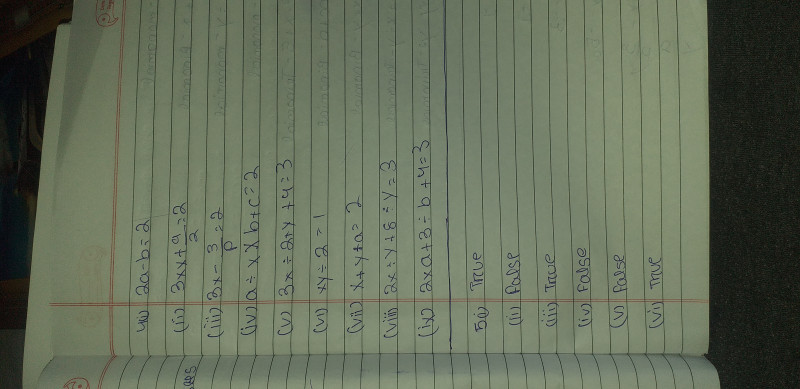 4(i) 2a-b=2
(ii) 3xx+a/2=2
(iii) 3x-3/p=2
(iv) a÷x×b+c=2
(v) 3x÷2+y+4=3
(vi) xy÷2=1
(vii) x+y+a=2
(viii) 2x÷y+8÷y=3
(ix) 2xa+3÷b+4=3
5(i) True
(ii) False
(iii) True
(iv) False
(v) False
(vi) True